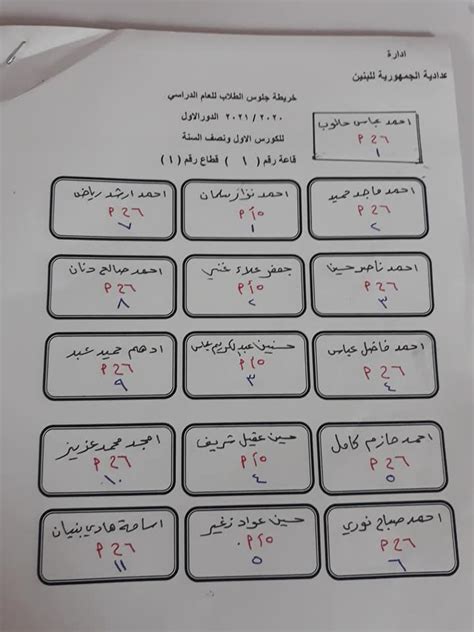 ادارة
عدادية الجمهورية للبنين
خريطة جلوس الطلاب للعام الدراسي
٢٠٢١/٢٠٢٠ الدور الاول
للكورس الاول ونصف السنة
قاعة رقم ( ١ ) قطاع رقم ( ١ )
احمد عباس
٢٦ م
١
احمد ماجد حميد
٢٦ م
٢
احمد نواز سلمان
٥ م
١
احمد ارشد رياض
٢٦ م
٧
احمد ناصر حسين
٢٦ م
٣
جعفر علاء غني
٥ م
٢
احمد صالح
٢٦ م
٨
احمد فاضل عباس
٢٦ م
٤
حسنين عبدالكريم علي
٥ م
٣
ادهم حميد عبد
٢٦ م
٩
احمد حازم كامل
٢٦ م
٥
حسين عقيل شريف
٥ م
٤
امجد محمد عزيز
٢٦ م
١٠
احمد صباح نوري
٢٦ م
٦
حسين عواد زغير
٥ م
٥
اسامة هادي بنيان
٢٦ م
١١